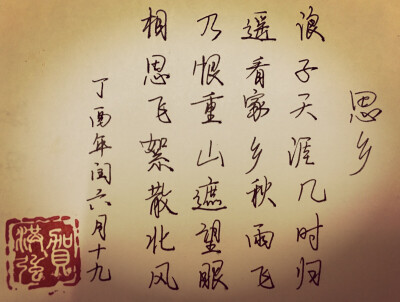 思乡
浪子天涯几时归
遥看家乡秋雨飞
乃恨重山遮望眼
相思飞絮散北风
丁酉年闰六月十九
贺洪强